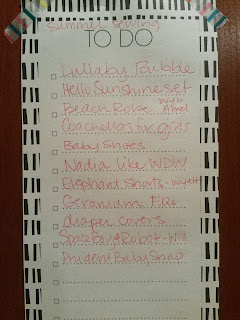 Summer Sewing
TO DO
Lullaby Bubble
Hello Sunshine set
Beach Robe
Coachellas for girls
Baby Shoes
Nadia like WDW
Elephant Shorts - Wyatt
Geranium
diaper covers
Space Boy & Robot - Will
Baby Snap